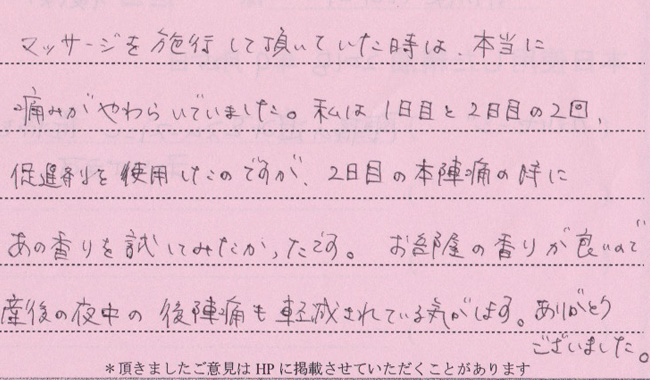 マッサージを施行して頂いていた時は、本当に
痛みがやわらいでいました。私は1日目と2日目の2回、
促進剤を使用したのですが、2日目の本陣痛の時に
あの香りを試してみたかったです。お部屋の香りが良いので
産後の夜中の後陣痛も軽減されている気がします。ありがとう
ございました。
＊頂きましたご意見はHPに掲載させていただくことがあります